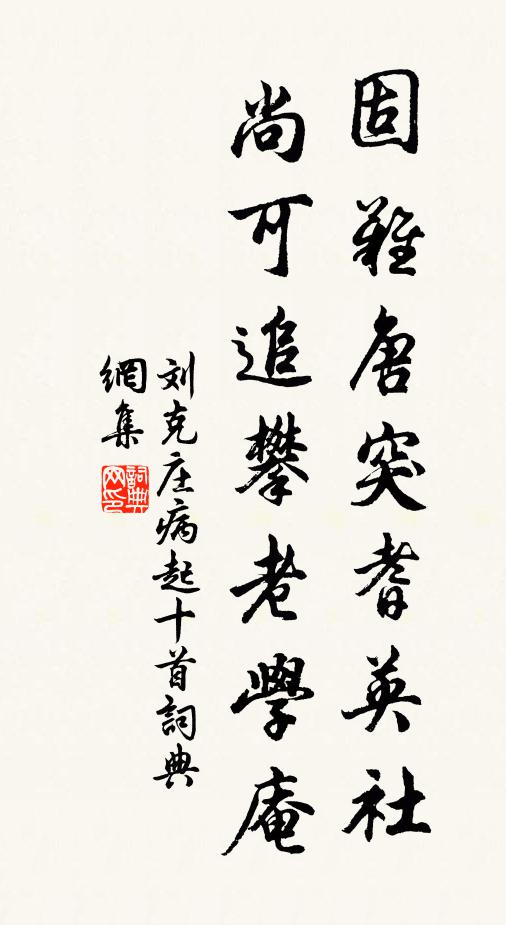 固難唐突耆英社
尚可追攀老學庵
刘克庄病起十首詞典
網集
詞典網印